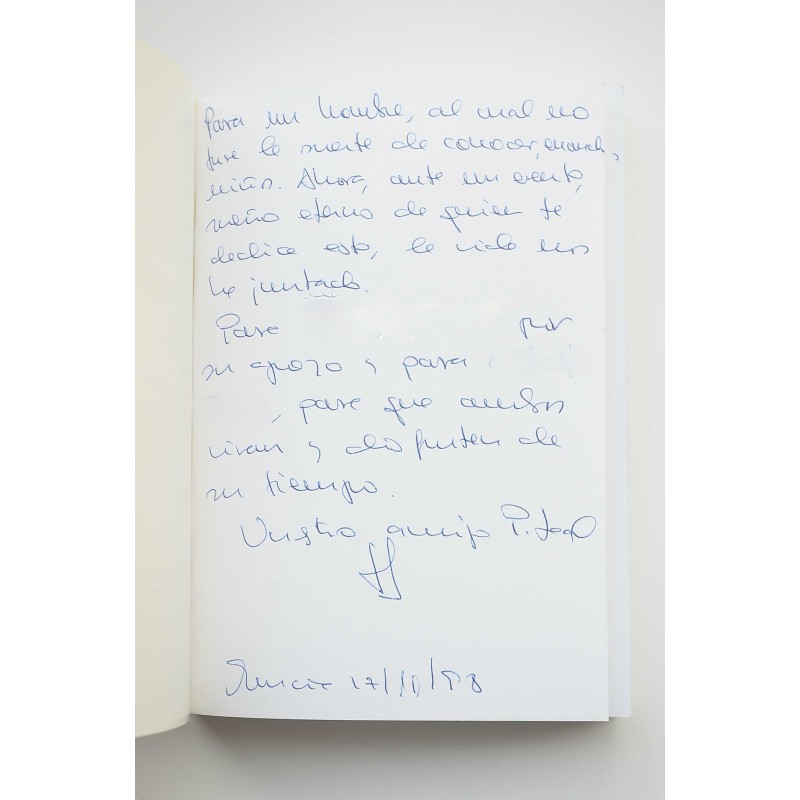 Para un hombre, al cual no
tuve la suerte de conocer, cuando,
niños. Ahora, ante un evento,
sueño eterno de quien te
dedica esto, la vida nos
ha juntado.
Para por
su apoyo y para
, para que ambos
vivan y disfruten de
su tiempo.
Vuestro amigo P.
Murcia 17/11/98